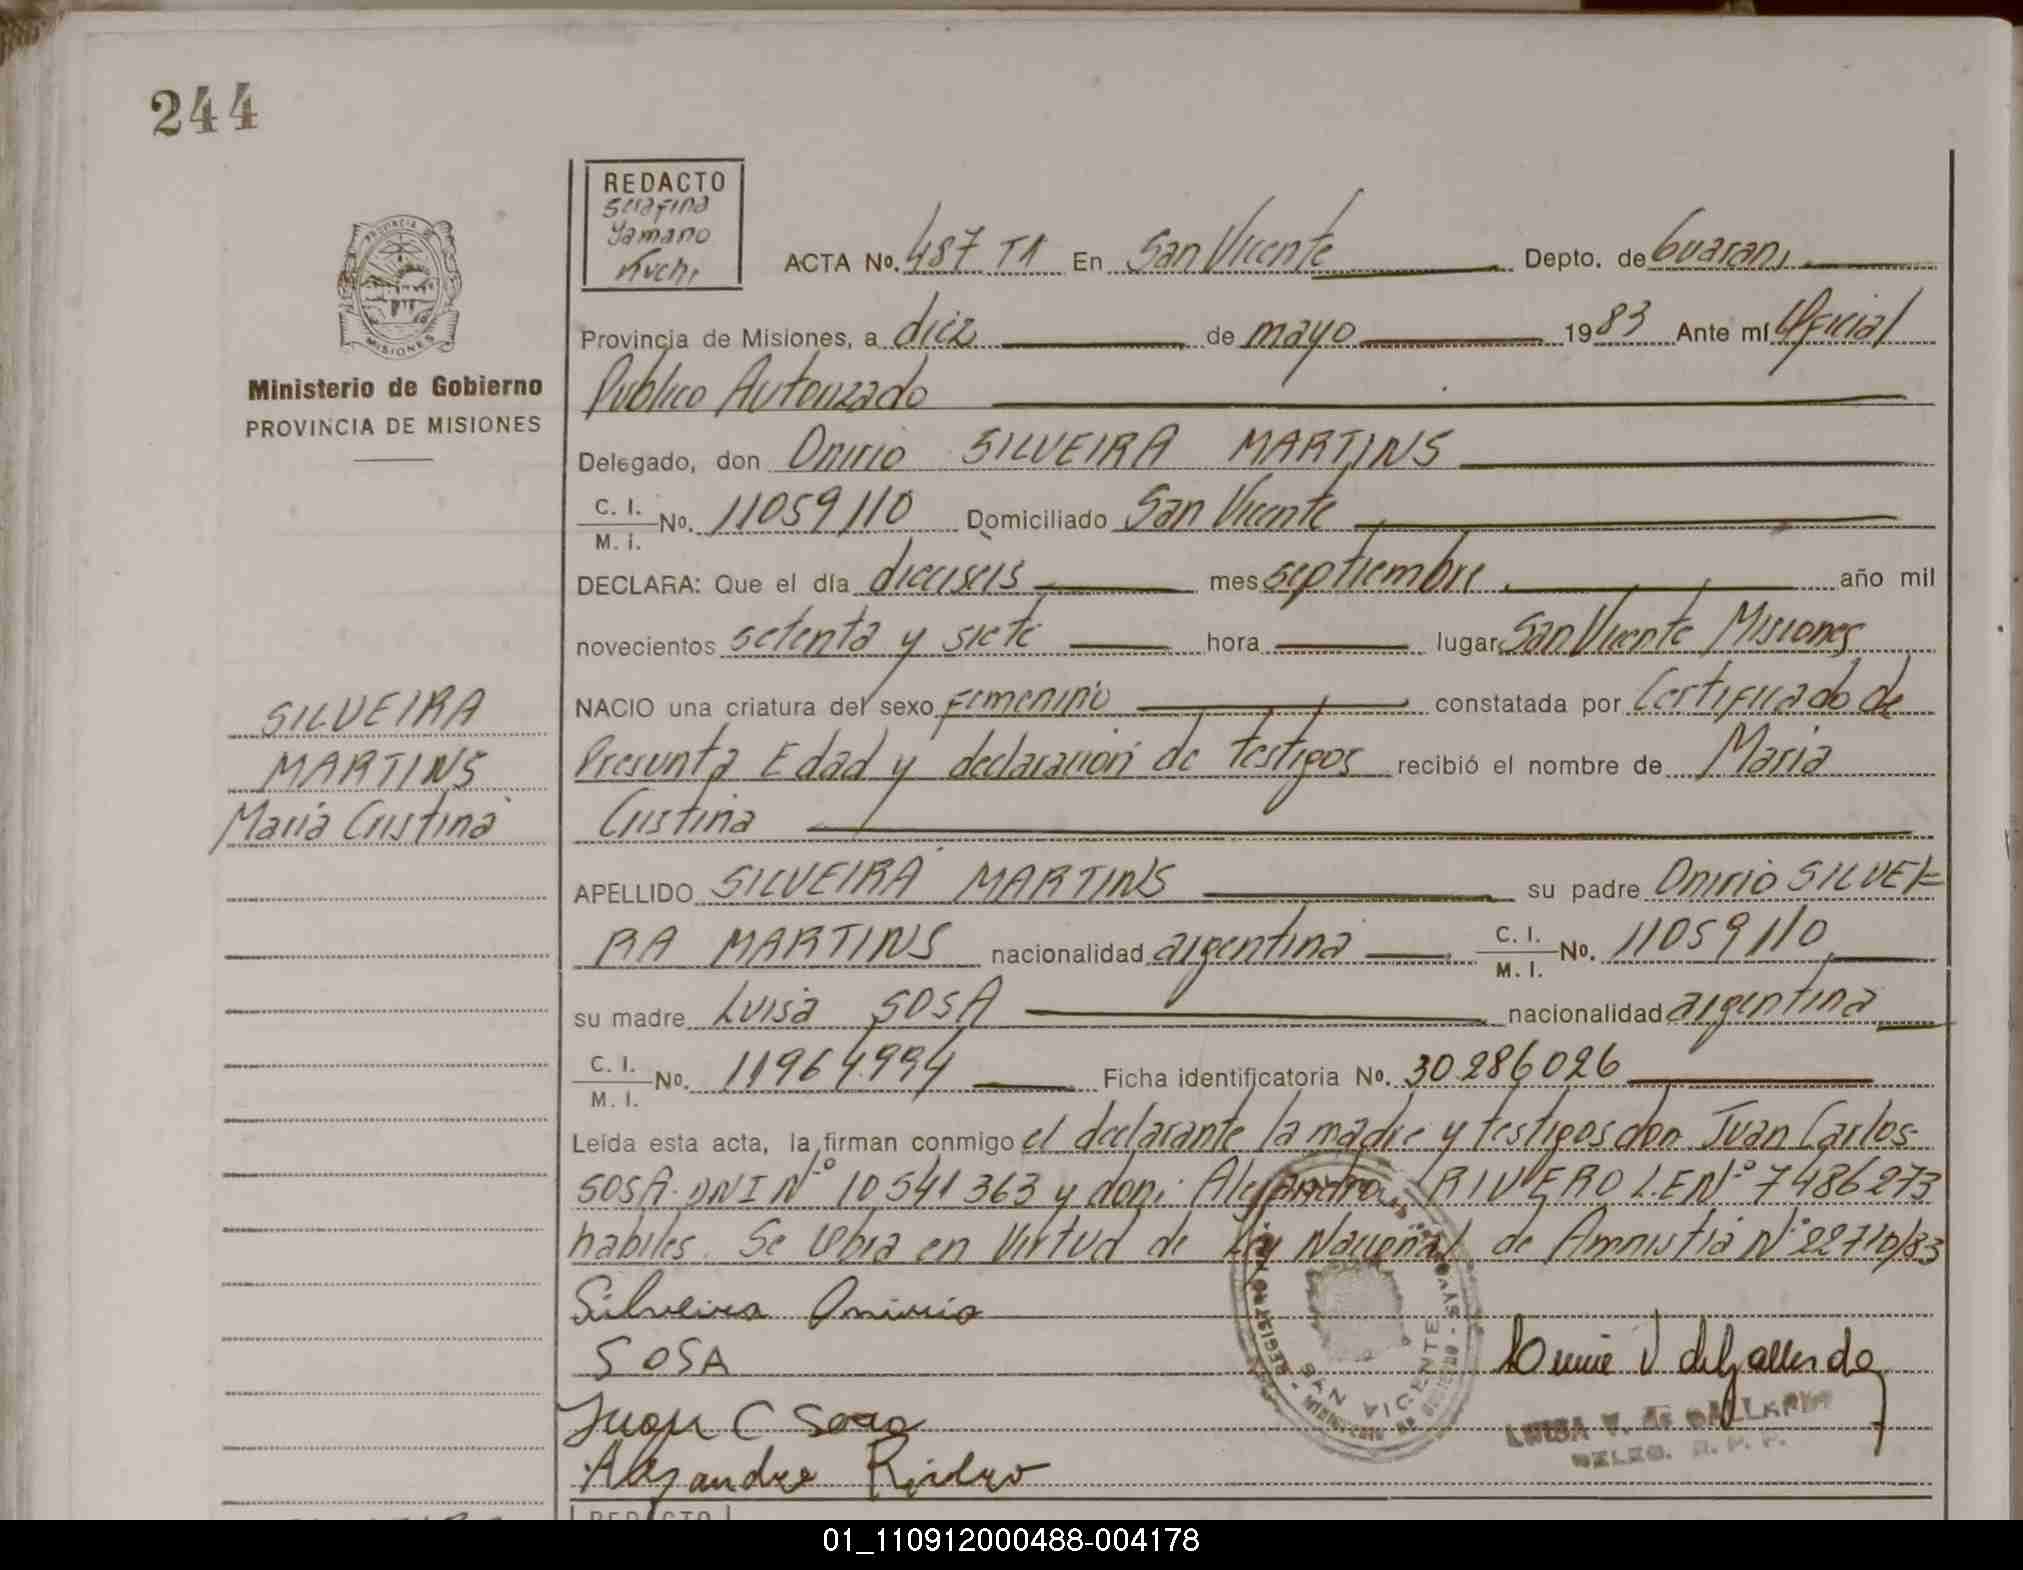 244
REDACTO
Serafina
Yamano
Kuchi
ACTA No. 487 T1 En San Vicente Depto. de Guaraní
Provincia de Misiones, a diez de mayo 1983 Ante mí Oficial
Publico Autorizado
MISIONES
Ministerio de Gobierno
PROVINCIA DE MISIONES
Delegado, don Onirio SILVEIRA MARTINS
C. I.
M. I. No. 11059110 Domiciliado San Vicente
DECLARA: Que el día dieciseis mes septiembre año mil
novecientos setenta y siete hora lugar San Vicente Misiones
NACIO una criatura del sexo femenino constatada por Certificado de
Presunta Edad y declaración de testigos recibió el nombre de Maria
Cristina
SILVEIRA
MARTINS
Maria Cristina
APELLIDO SILVEIRA MARTINS su padre Onirio SILVEI=
RA MARTINS nacionalidad argentina C. I.
M. I. No. 11059110
su madre Luisa SOSA nacionalidad argentina
C. I.
M. I. No. 11964994 Ficha identificatoria No. 30286026
Leída esta acta, la firman conmigo el declarante la madre y testigos don Juan Carlos
SOSA DNI Nº 10541363 y don: Alejandro RIVERO L.E Nº 7486273
habiles. Se labra en Virtud de Ley Nacional de Amnistia Nº 22710/83
Silveira Onirio
SOSA
Juan C Sosa
Alejandro Rivero
SAN VICENTE
LUISA V. de GALLARDO
DELEG. R. P. P.
REDACTO
01_110912000488-004178